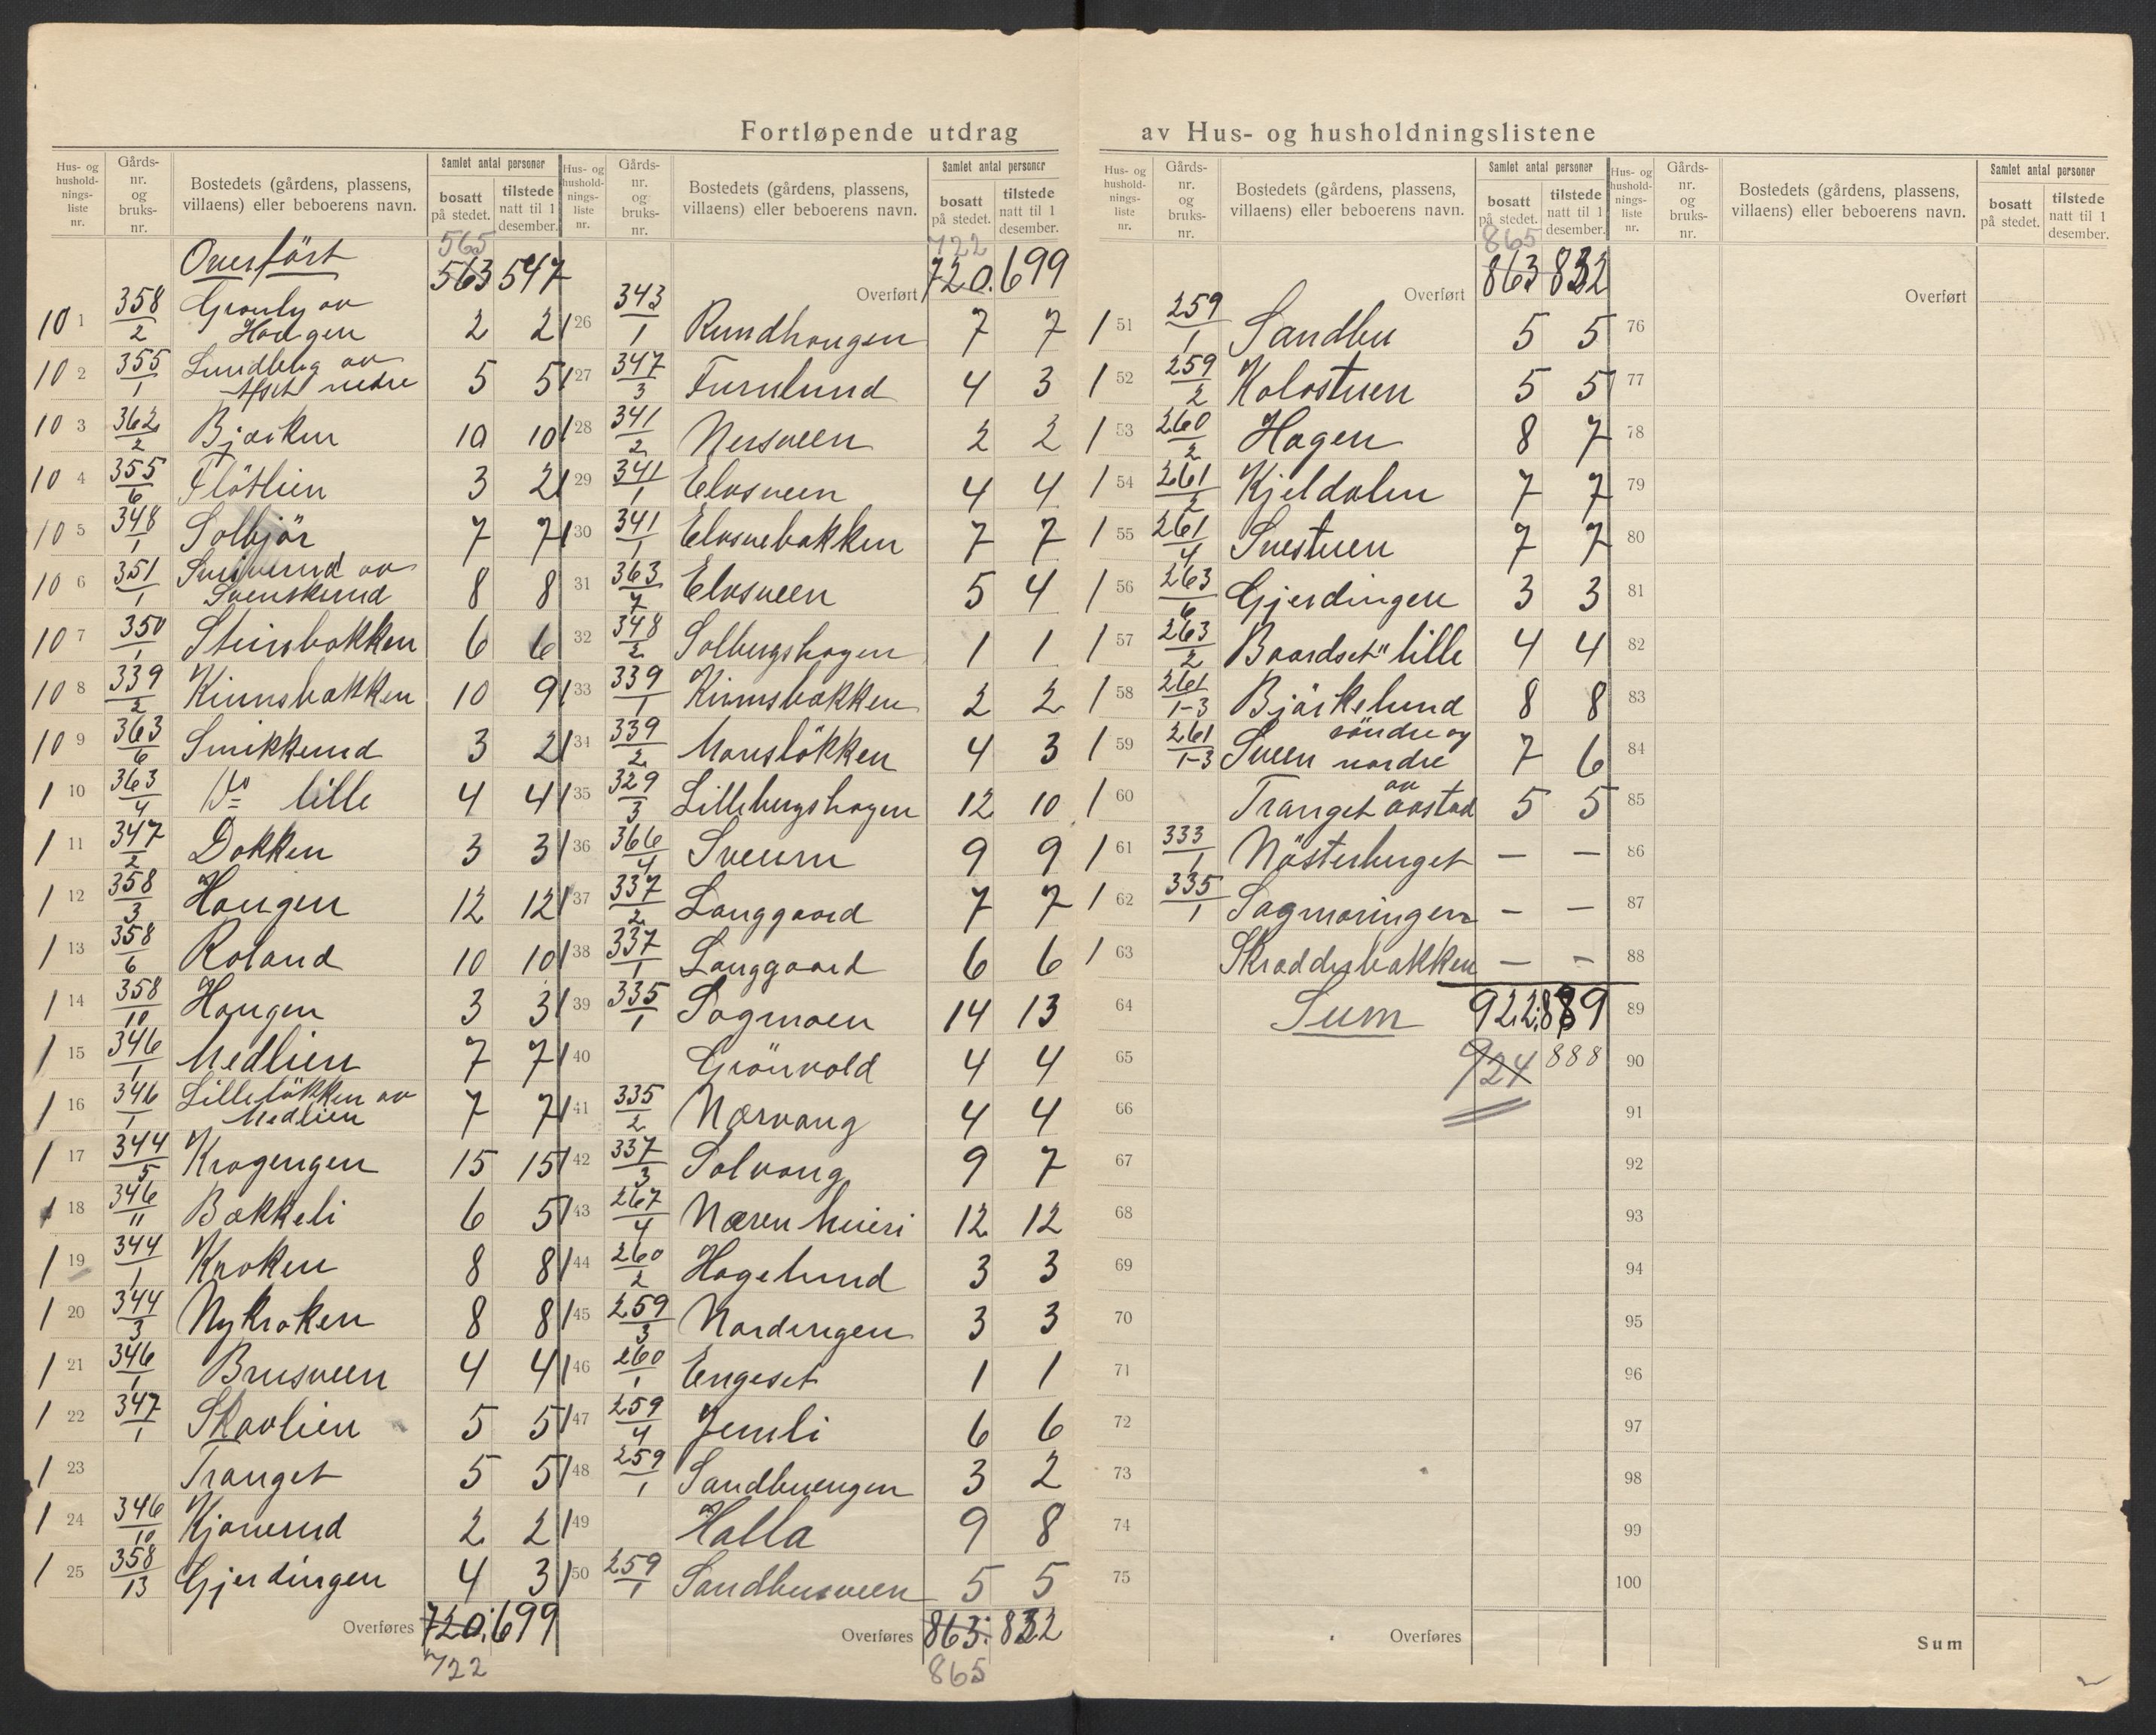 Fortløpende utdrag av Hus- og husholdningslistene
Hus- og husholdnings-liste nr. Gårds-nr. og bruks-nr. Bostedets (gårdens, plassens, villaens) eller beboerens navn. Samlet antal personer bosatt på stedet. tilstede natt til 1 desember.
565
Overført 563 547
10 1 358/2 Grønly av Haugen 2 2
10 2 355/1 Lundberg av Afset nedre 5 5
10 3 362/2 Bjørken 10 10
10 4 355/6 Flötlien 3 2
10 5 348/1 Solbjör 7 7
10 6 351/1 av Svenskerud 8 8
10 7 350/1 Steinsbakken 6 6
10 8 339/2 Kinnsbakken 10 9
10 9 363/6 Snikkerud 3 2
1 10 363/4 Do lille 4 4
1 11 347/2 Dokken 3 3
1 12 358/3 Haugen 12 12
1 13 358/6 Roland 10 10
1 14 358/10 Haugen 3 3
1 15 346/1 Medlien 7 7
1 16 346/1 Lillelökken av Medlien 7 7
1 17 344/5 Kragengen 15 15
1 18 346/11 Bakkeli 6 5
1 19 344/1 Kroken 8 8
1 20 344/3 Nykroken 8 8
1 21 346/1 Brusveen 4 4
1 22 347/1 Skavlien 5 5
1 23 Tranget 5 5
1 24 346/10 Kjonerud 2 2
1 25 358/13 Gjerdingen 4 3
Overføres 720 699
722
Hus- og husholdnings-liste nr. Gårds-nr. og bruks-nr. Bostedets (gårdens, plassens, villaens) eller beboerens navn. Samlet antal personer bosatt på stedet. tilstede natt til 1 desember.
722
Overført 720 699
1 26 343/1 Rundhaugen 7 7
1 27 347/3 Furulund 4 3
1 28 341/2 Nersveen 2 2
1 29 341/1 Elvsveen 4 4
1 30 341/1 Elvsvebakken 7 7
31 363/7 Elvsveen 5 4
32 348/2 Solbergshagen 1 1
1 33 339/1 Kinnsbakken 2 2
1 34 339/2 Monslökken 4 3
1 35 329/3 Lillebergshagen 12 10
1 36 366/4 Sveum 9 9
1 37 337/2 Langgaard 7 7
1 38 337/1 Langgaard 6 6
1 39 335/1 Sagmoen 14 13
1 40 Grönvold 4 4
1 41 335/2 Nærvang 4 4
1 42 337/3 Solvang 9 7
1 43 267/4 Næren Meieri 12 12
1 44 260/2 Hagelund 3 3
1 45 259/3 Nordengen 3 3
1 46 260/1 Engeset 1 1
1 47 259/4 Jemli 6 6
1 48 259/1 Sandbuengen 3 2
1 49 Halla 9 8
1 50 259/1 Sandbusveen 5 5
Overføres 863 832
865
Hus- og husholdnings-liste nr. Gårds-nr. og bruks-nr. Bostedets (gårdens, plassens, villaens) eller beboerens navn. Samlet antal personer bosatt på stedet. tilstede natt til 1 desember.
865
Overført 863 832
1 51 259/1 Sandbu 5 5
1 52 259/2 Kolostuen 5 5
1 53 260/2 Hagen 8 7
1 54 261/2 Kjeldalen 7 7
1 55 261/4 Svestuen 7 7
1 56 263/6 Gjerdingen 3 3
1 57 263/2 Baardset lille 4 4
1 58 261/1-3 Björkelund 8 8
1 59 261/1-3 Sveen söndre og nordre 7 6
1 60 Tranget av aastad 5 5
1 61 333/1 Nösterberget — —
1 62 335/1 Sagmoringen — —
1 63 Skradderbakken — —
64 Sum 922 889
65 924 888
66
67
68
69
70
71
72
73
74
75
Overføres
Hus- og husholdnings-liste nr. Gårds-nr. og bruks-nr. Bostedets (gårdens, plassens, villaens) eller beboerens navn. Samlet antal personer bosatt på stedet. tilstede natt til 1 desember.
Overført
76
77
78
79
80
81
82
83
84
85
86
87
88
89
90
91
92
93
94
95
96
97
98
99
100
Sum